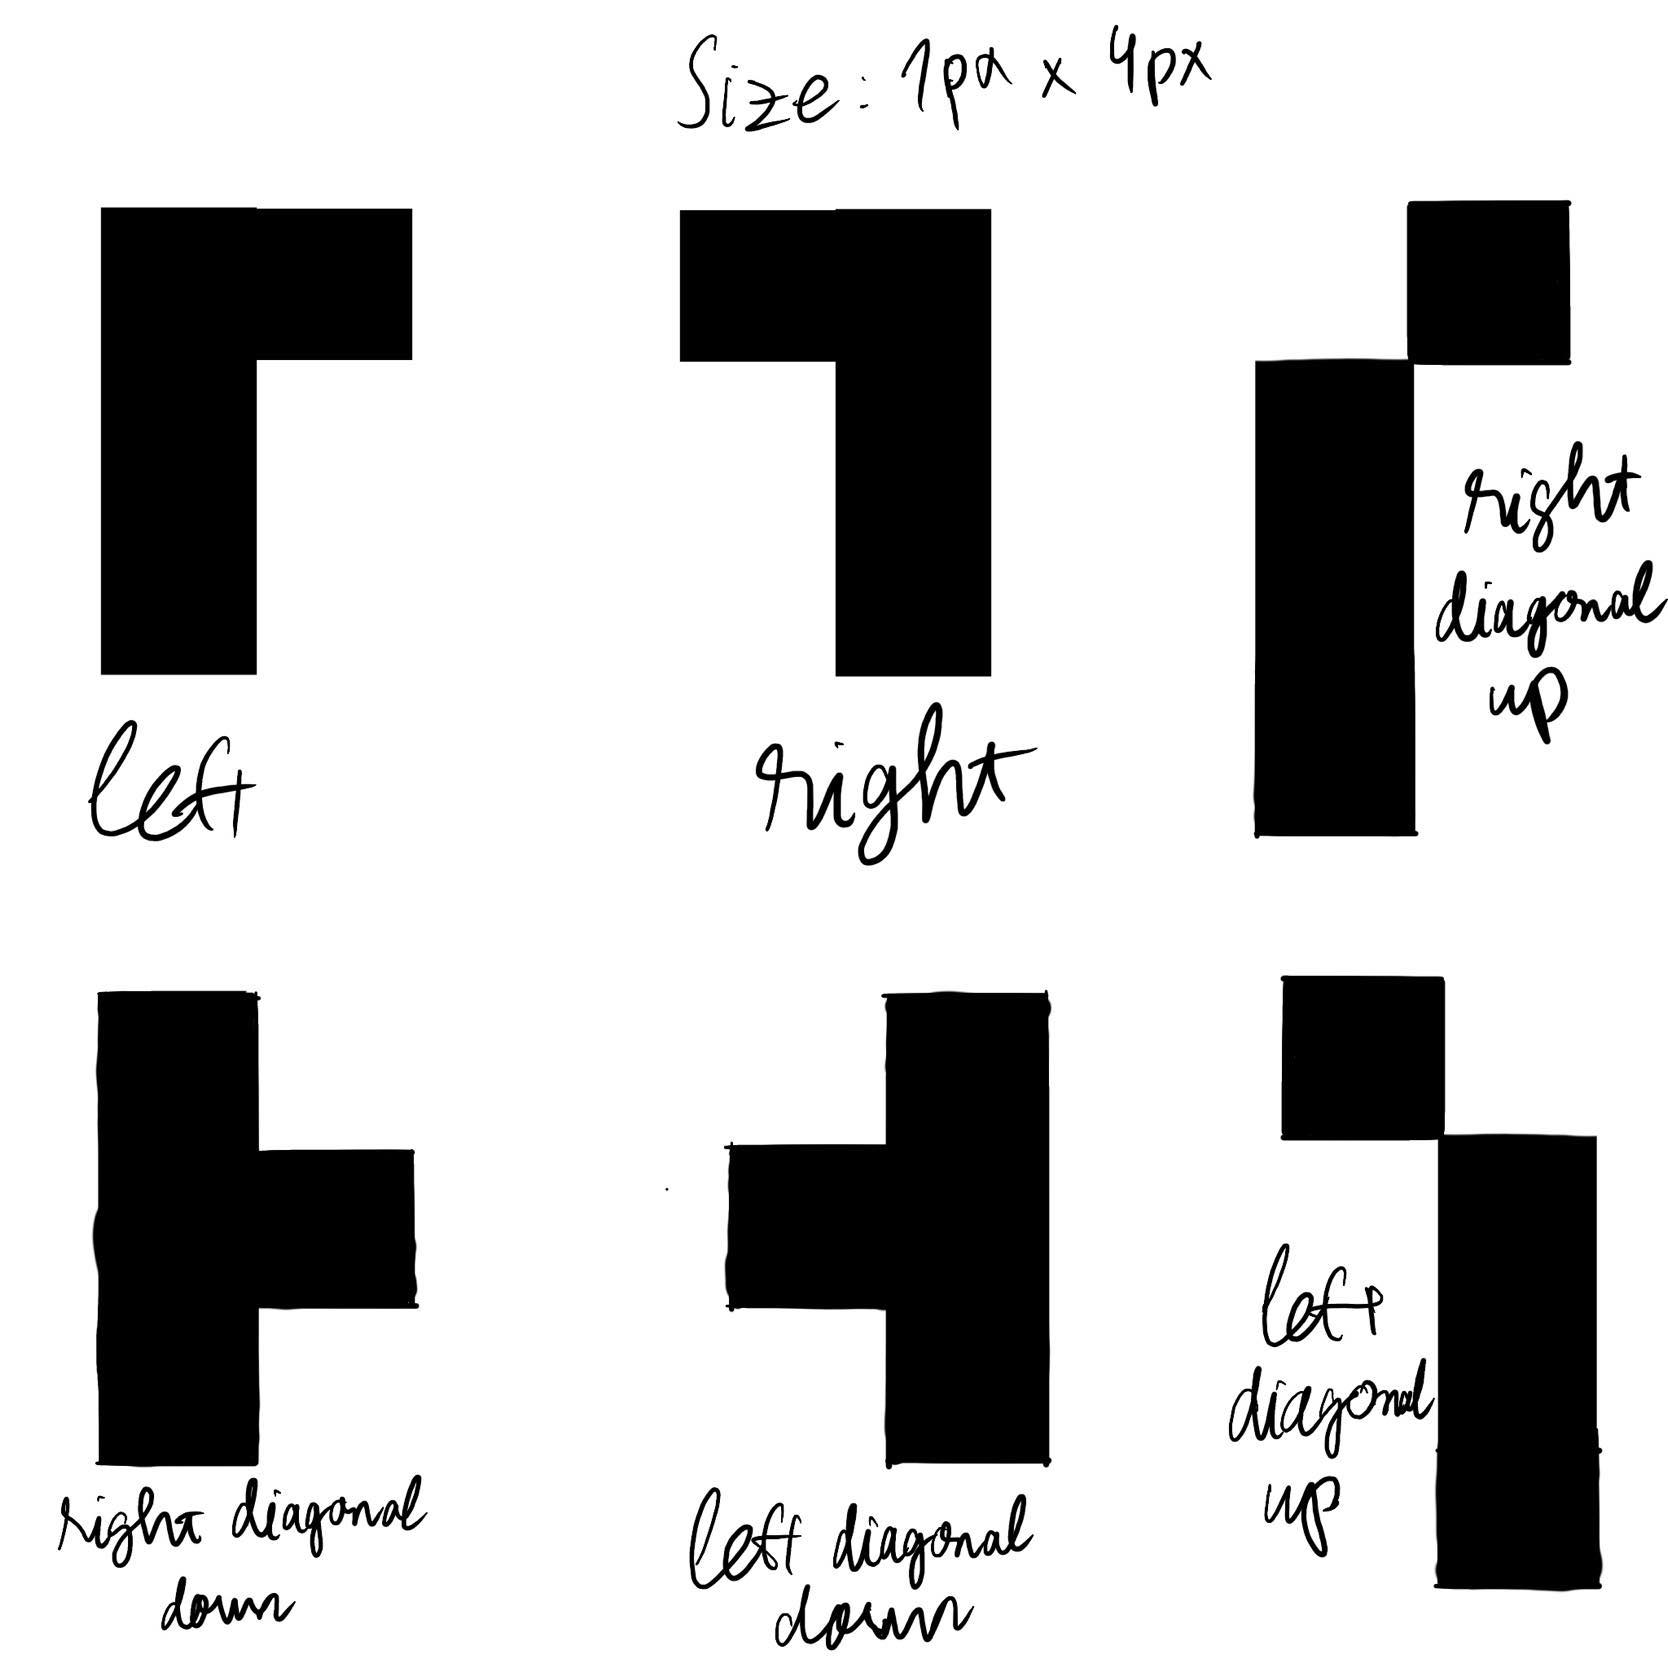 Size: 1px x 4px
left
right
right
diagonal
up
right diagonal
down
left diagonal
down
left
diagonal
up